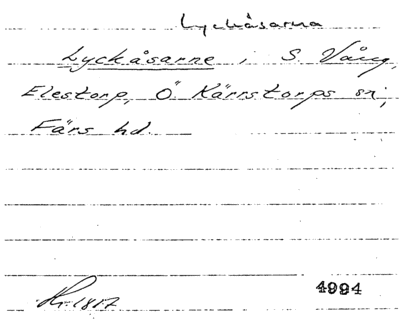 Lyckåsarna
Lyckåsarne, S. Vång,
Elestorp, Ö. Kärrstorps sn,
Färs hd
Kr. 1817
4994